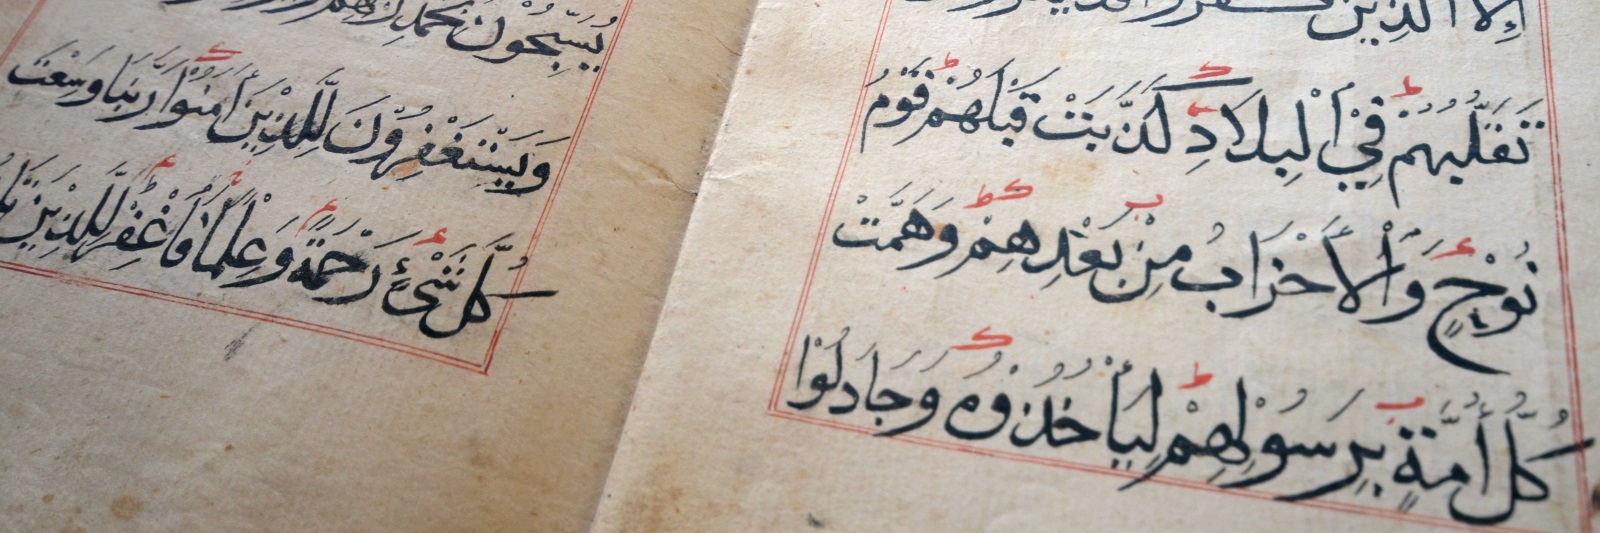 إِلَّا الَّذِينَ كَفَرُوا فَلَا
تَقَلُّبُهُمْ فِي الْبِلَادِ كَذَّبَتْ قَبْلَهُمْ قَوْمُ
نُوحٍ وَالْأَحْزَابُ مِنْ بَعْدِهِمْ وَهَمَّتْ
كُلُّ أُمَّةٍ بِرَسُولِهِمْ لِيَأْخُذُوهُ وَجَادَلُوا
يُسَبِّحُونَ بِحَمْدِ رَبِّهِمْ
وَيَسْتَغْفِرُونَ لِلَّذِينَ اٰمَنُوا رَبَّنَا وَسِعْتَ
كُلَّ شَيْءٍ رَحْمَةً وَعِلْمًا فَاغْفِرْ لِلَّذِينَ